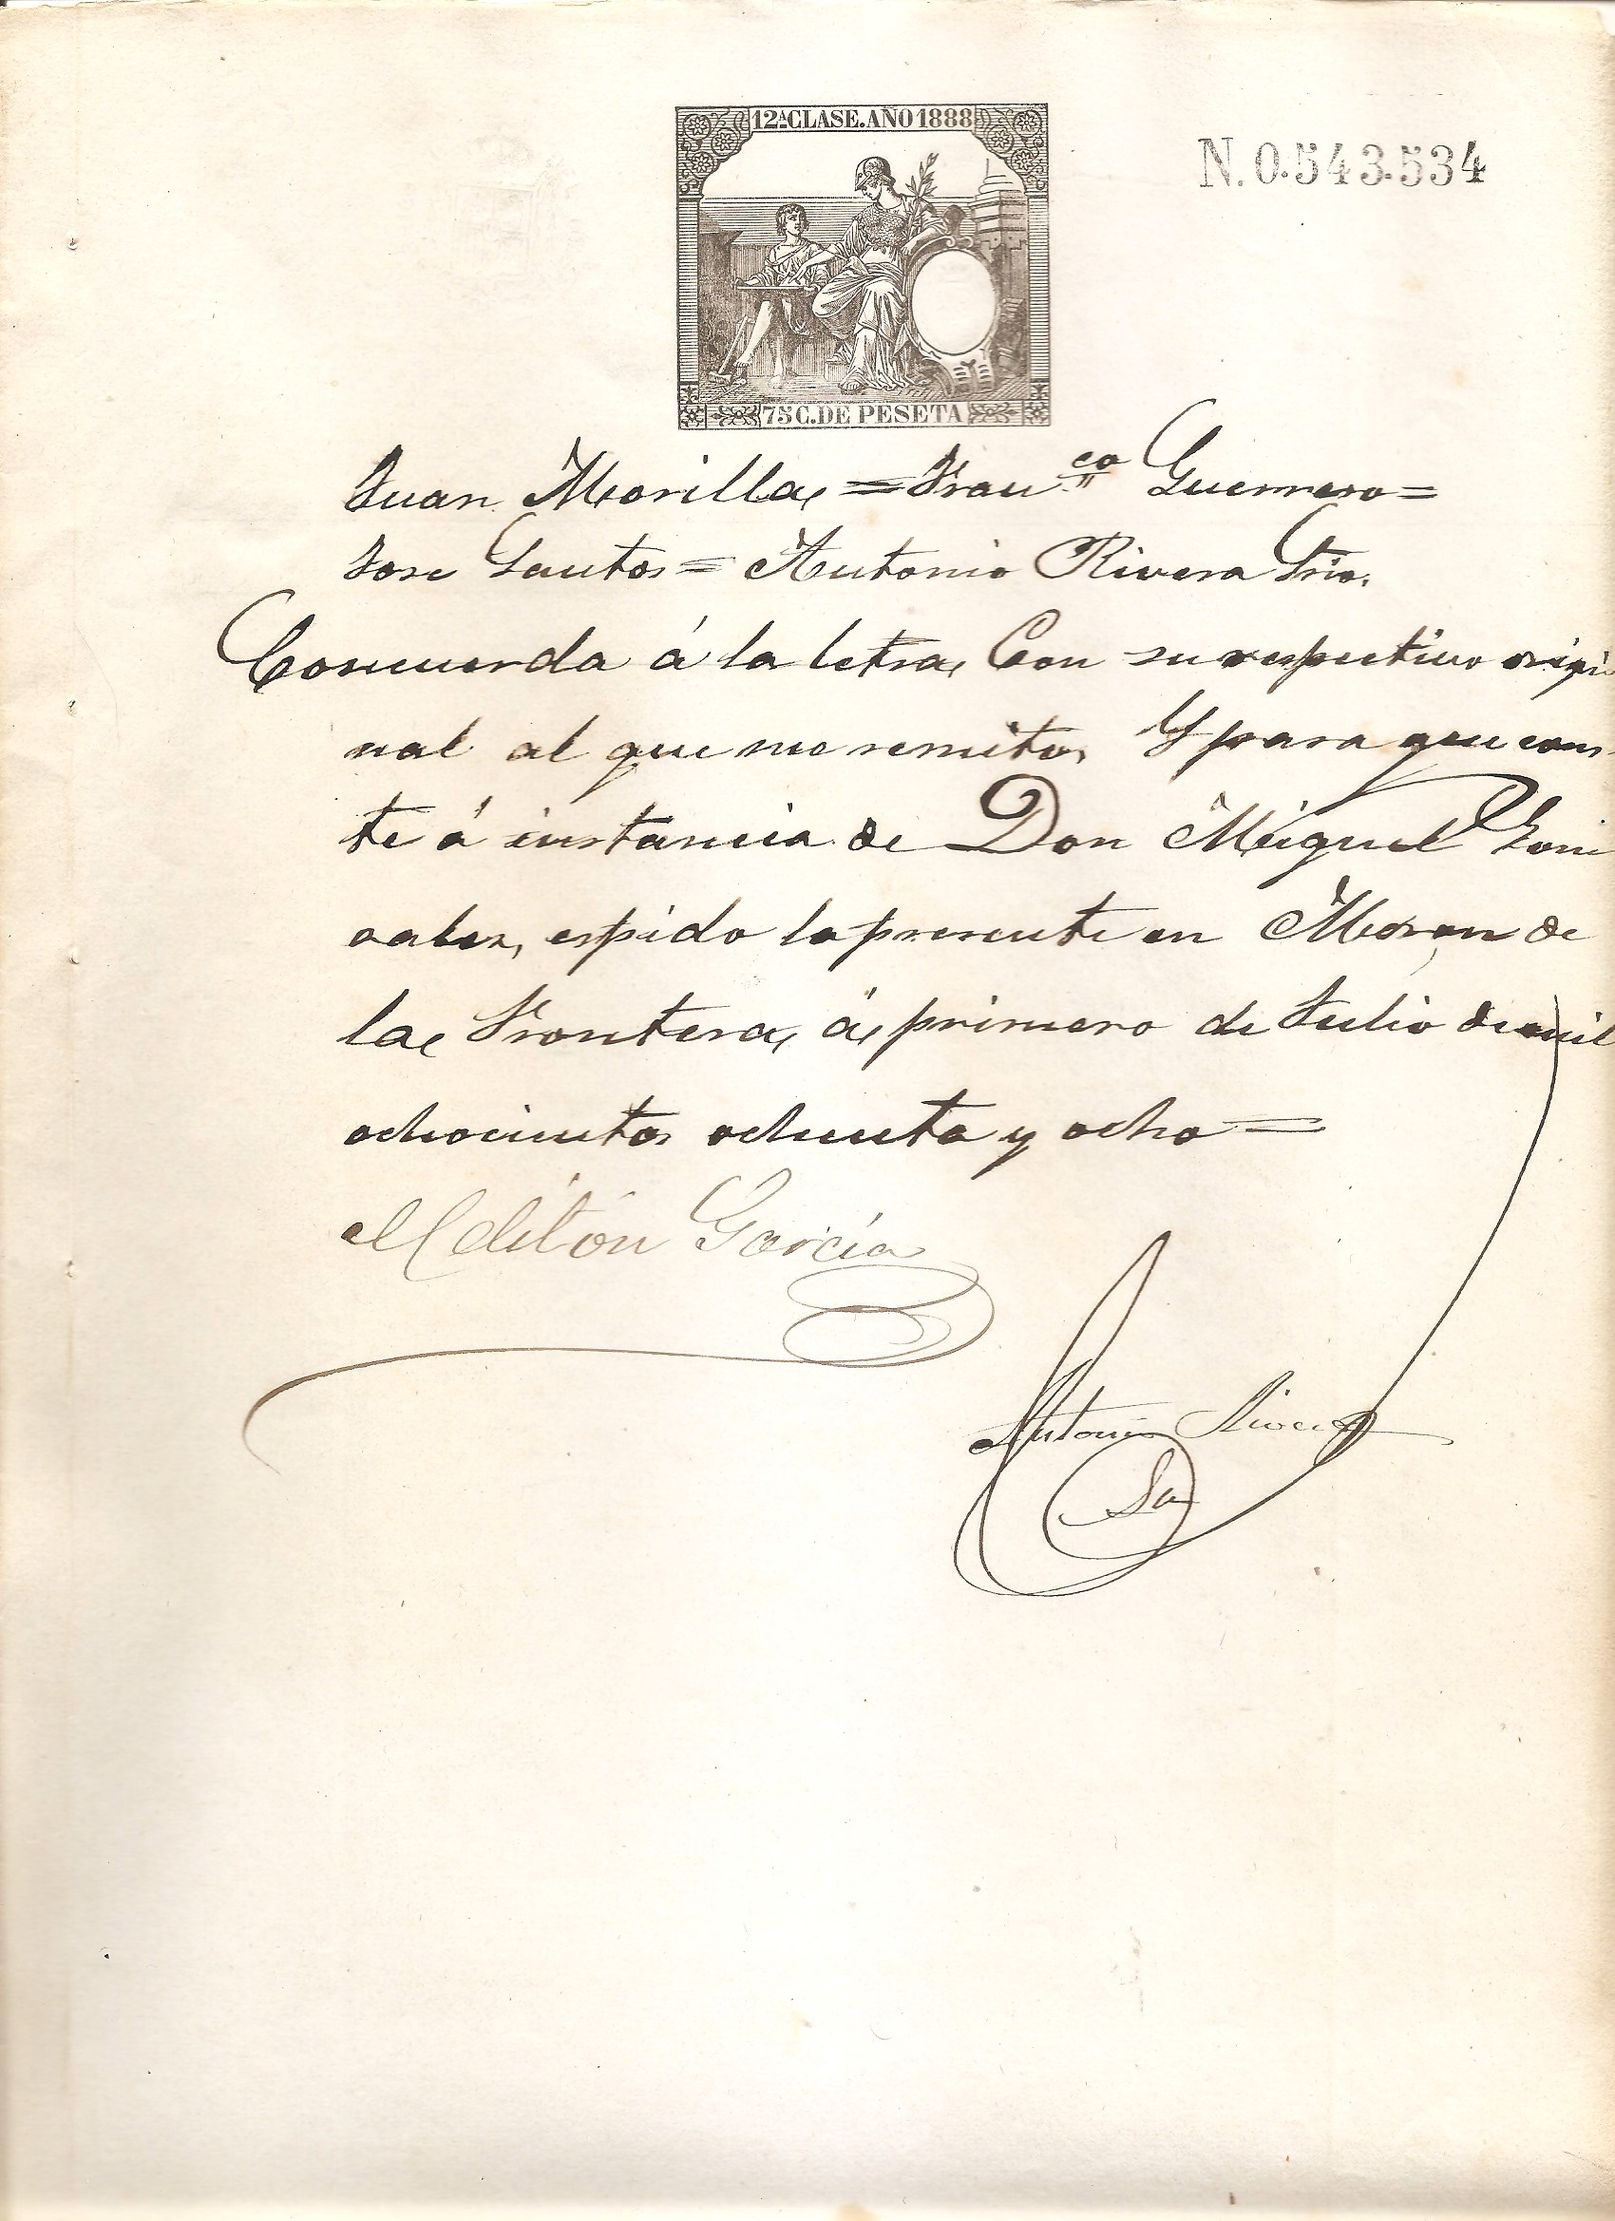 12ª CLASE. AÑO 1888
N. 0.543.534
75 C. DE PESETA
Juan Morilla = Franco Guerrero =
Jose Santos = Antonio Rivera Srio.
Concuerda á la letra, Con su respectivo origi
nal al que me remito, Y para que cons-
te á instancia de Don Miguel Gon
zalez, espido la presente en Moron de
la Frontera, á primero de Julio de mil
ochocientos ochenta y ocho =
Melitón García
Antonio Rivera